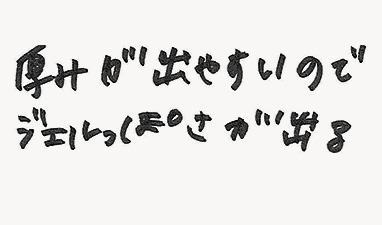 厚みが出やすいので
ジェルっぽさが出る